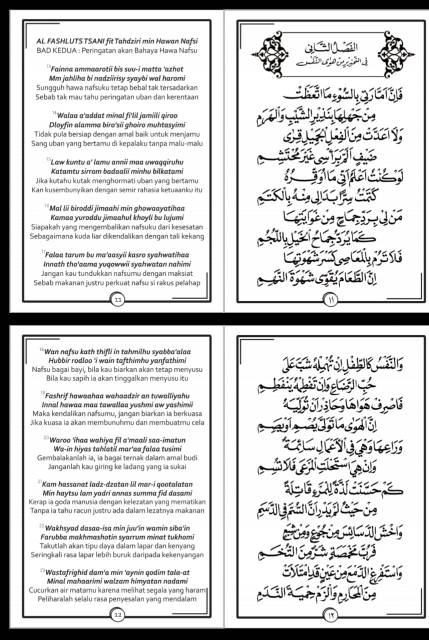 AL FASHLUTS TSANI fit Tahdziri min Hawan Nafsi
BAD KEDUA : Peringatan akan Bahaya Hawa Nafsu
13 Fainna ammaarotii bis suu-i matta 'azhot
Mm jahliha bi nadziirisy syaybi wal haromi
Sungguh hawa nafsuku tetap bebal tak tersadarkan
Sebab tak mau tahu peringatan uban dan kerentaan
14 Walaa a'addat minal fi'lil jamiili qiroo
Dloyfin alamma biro'sii ghoiro muhtasyimi
Tidak pula bersiap dengan amal baik untuk menjamu
Sang uban yang bertamu di kepalaku tanpa malu-malu
15 Law kuntu a' lamu annii maa uwaqqiruhu
Katamtu sirrom badaalii minhu bilkatami
Jika kutahu kutak menghormati uban yang bertamu
Kan kusembunyikan dengan semir rahasia ketuaanku itu
16 Mal lii biroddi jimaahi min ghowaayatihaa
Kamaa yuroddu jimaahul khoyli bu lujumi
Siapakah yang mengembalikan nafsuku dari kesesatan
Sebagaimana kuda liar dikendalikan dengan tali kekang
17 Falaa tarum bu ma'aasyii kasro syahwatihaa
Innath tho'aama yuqowwii syahwatan nahimi
Jangan kau tundukkan nafsumu dengan maksiat
Sebab makanan justru perkuat nafsu si rakus pelahap
11
الفَصْلُ الثَّانِى
فِى التَّحْذِيْرِ مِنْ هَوَى النَّفْسِ
فَإِنَّ أَمَّارَتِى بِالسُّوْءِ مَا اتَّعَظَتْ
مِنْ جَهْلِهَا بِنَذِيْرِ الشَّيْبِ وَالْهَرَمِ
وَلَا أَعَدَّتْ مِنَ الْفِعْلِ الْجَمِيْلِ قِرَى
ضَيْفٍ أَلَمَّ بِرَأْسِى غَيْرَ مُحْتَشِمِ
لَوْ كُنْتُ أَعْلَمُ أَنِّى مَا أُوَقِّرُهُ
كَتَمْتُ سِرًّا بَدَا لِى مِنْهُ بِالْكَتَمِ
مَنْ لِى بِرَدِّ جِمَاحٍ مِنْ غَوَايَتِهَا
كَمَا يُرَدُّ جِمَاحُ الْخَيْلِ بِاللُّجُمِ
فَلَا تَرُمْ بِالْمَعَاصِى كَسْرَ شَهْوَتِهَا
إِنَّ الطَّعَامَ يُقَوِّى شَهْوَةَ النَّهِمِ
١١
18 Wan nafsu kath thifli in tahmilhu syabba'alaa
Hubbir rodloo 'i wain tafthimhu yanfathimi
Nafsu bagai bayi, bila kau biarkan akan tetap menyusu
Bila kau sapih ia akan tinggalkan menyusu itu
19 Fashrif hawaahaa wahaadzir an tuwalliyahu
Innal hawaa maa tawallaa yushmi aw yashimii
Maka kendalikan nafsumu, jangan biarkan ia berkuasa
Jika kuasa ia akan membunuhmu dan membuatmu cela
20 Waroo 'ihaa wahiya fil a'maali saa-imatun
Wa-in hiyas tahlatil mar'aa falaa tusimi
Gembalakanlah ia, ia bagai ternak dalam amal budi
Janganlah kau giring ke ladang yang ia sukai
21 Kam hassanat ladz-dzatan lil mar-i qootalatan
Min haytsu lam yadri annas summa fid dasami
Kerap ia goda manusia dengan kelezatan yang mematikan
Tanpa ia tahu racun justru ada dalam lezatnya makanan
22 Wakhsyad dasaa-isa min juu'in wamin siba'in
Farubba makhmashotin syarrum minat tukhomi
Takutlah akan tipu daya dalam lapar dan kenyang
Seringkali rasa lapar lebih buruk daripada kekenyangan
23 Wastafrighid dam'a min 'aynin qodim tala-at
Minal mahaarimi walzam himyatan nadami
Cucurkan air matamu karena melihat segala yang haram
Peliharalah selalu rasa penyesalan yang mendalam
12
وَالنَّفْسُ كَالطِّفْلِ إِنْ تُهْمِلْهُ شَبَّ عَلَى
حُبِّ الرَّضَاعِ وَإِنْ تَفْطِمْهُ يَنْفَطِمِ
فَاصْرِفْ هَوَاهَا وَحَاذِرْ أَنْ تُوَلِّيَهُ
إِنَّ الْهَوَى مَا تَوَلَّى يُصْمِ أَوْ يَصِمِ
وَرَاعِهَا وَهِىَ فِى الْأَعْمَالِ سَائِمَةٌ
وَإِنْ هِىَ اسْتَحْلَتِ الْمَرْعَى فَلَا تُسِمِ
كَمْ حَسَّنَتْ لَذَّةً لِلْمَرْءِ قَاتِلَةً
مِنْ حَيْثُ لَمْ يَدْرِ أَنَّ السُّمَّ فِى الدَّسَمِ
وَاخْشَ الدَّسَائِسَ مِنْ جُوْعٍ وَمِنْ شِبَعٍ
فَرُبَّ مَخْمَصَةٍ شَرٌّ مِنَ التُّخَمِ
وَاسْتَفْرِغِ الدَّمْعَ مِنْ عَيْنٍ قَدِ امْتَلَأَتْ
مِنَ الْمَحَارِمِ وَالْزَمْ حِمْيَةَ النَّدَمِ
١٢